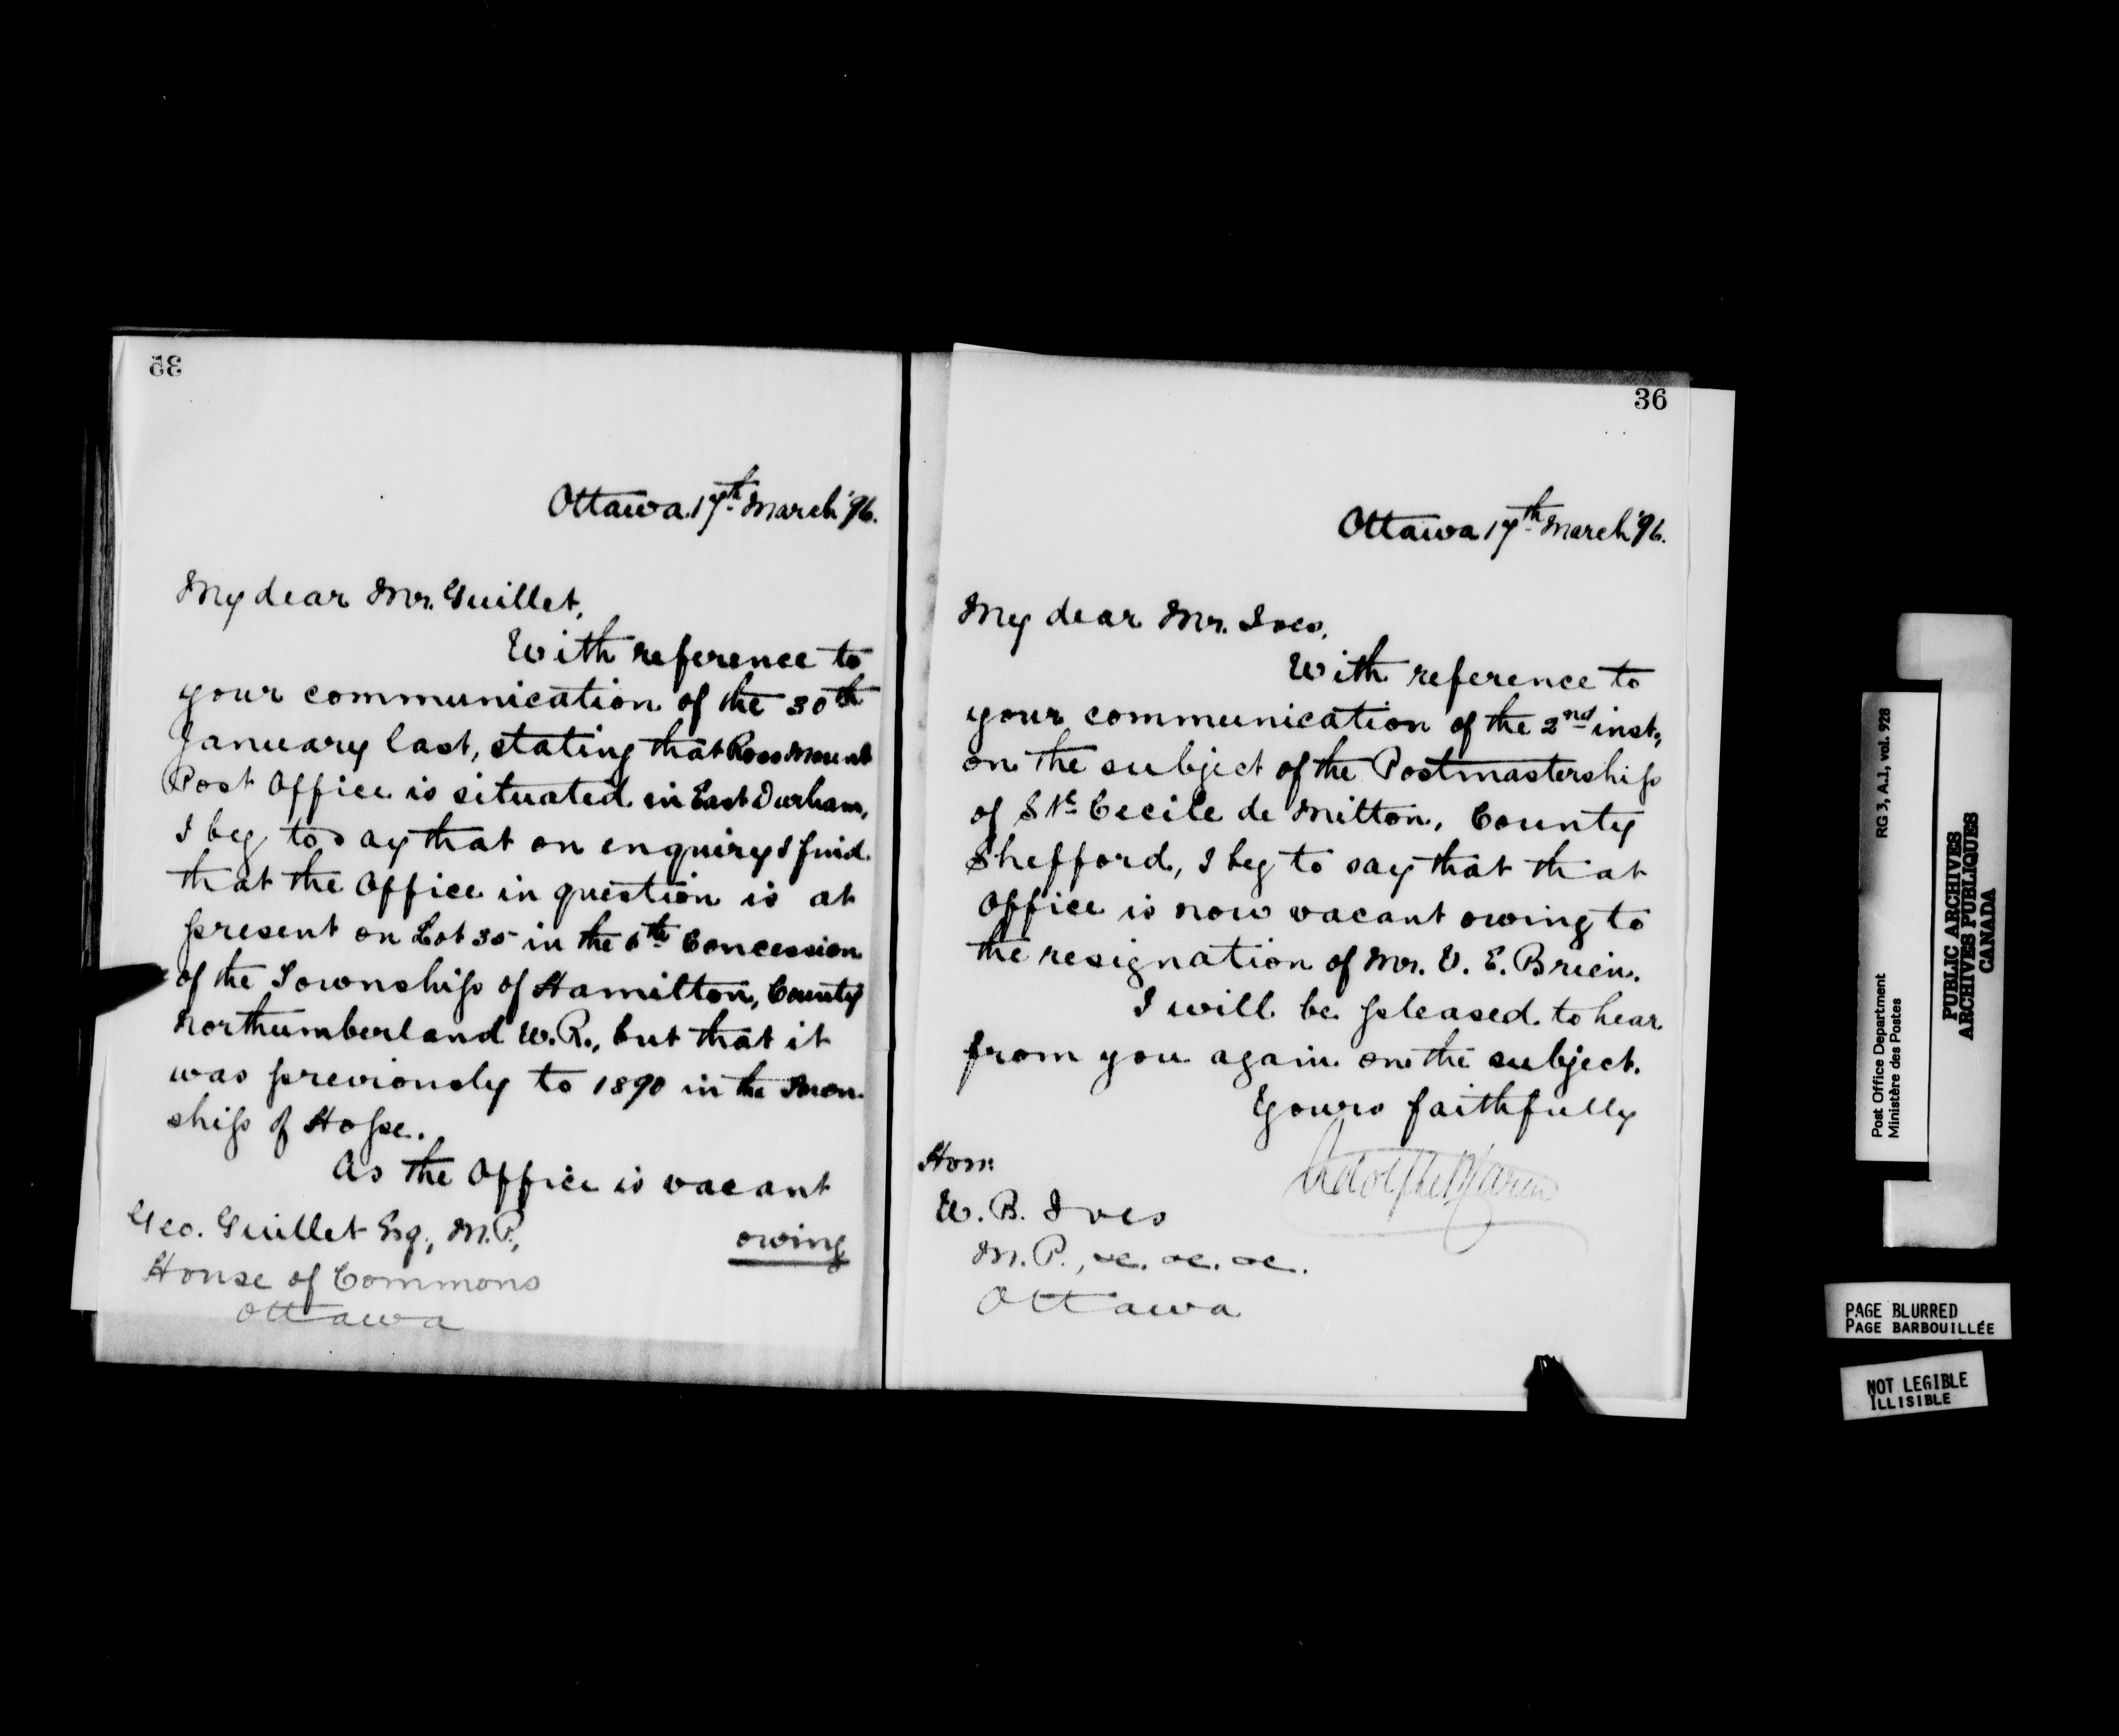 35
Ottawa 17th March '96.
My dear Mr. Guillet,
With reference to
your communication of the 30th
January last, stating that Rossmount
Post Office is situated in East Durham,
I beg to say that on enquiry I find
that the Office in question is at
present on Lot 35 in the 6th Concession
of the Township of Hamilton, County
Northumberland W.R., but that it
was previously to 1890 in the Town-
ship of Hope.
As the Office is vacant
Geo. Guillet Esq., M.P.,
owing
House of Commons
Ottawa
36
Ottawa 17th March '96.
My dear Mr. Ives,
With reference to
your communication of the 2nd inst.,
on the subject of the Postmastership
of Ste Cecile de Milton, County
Shefford, I beg to say that that
Office is now vacant owing to
the resignation of Mr. V. E. Brien.
I will be pleased to hear
from you again on the subject.
Yours faithfully
Adolphe P. Caron
Hon:
W. B. Ives
M.P., &c. &c. &c.
Ottawa
RG 3, A.1, vol. 928
Post Office Department
Ministère des Postes
PUBLIC ARCHIVES
ARCHIVES PUBLIQUES
CANADA
PAGE BLURRED
PAGE BARBOUILLÉE
NOT LEGIBLE
ILLISIBLE